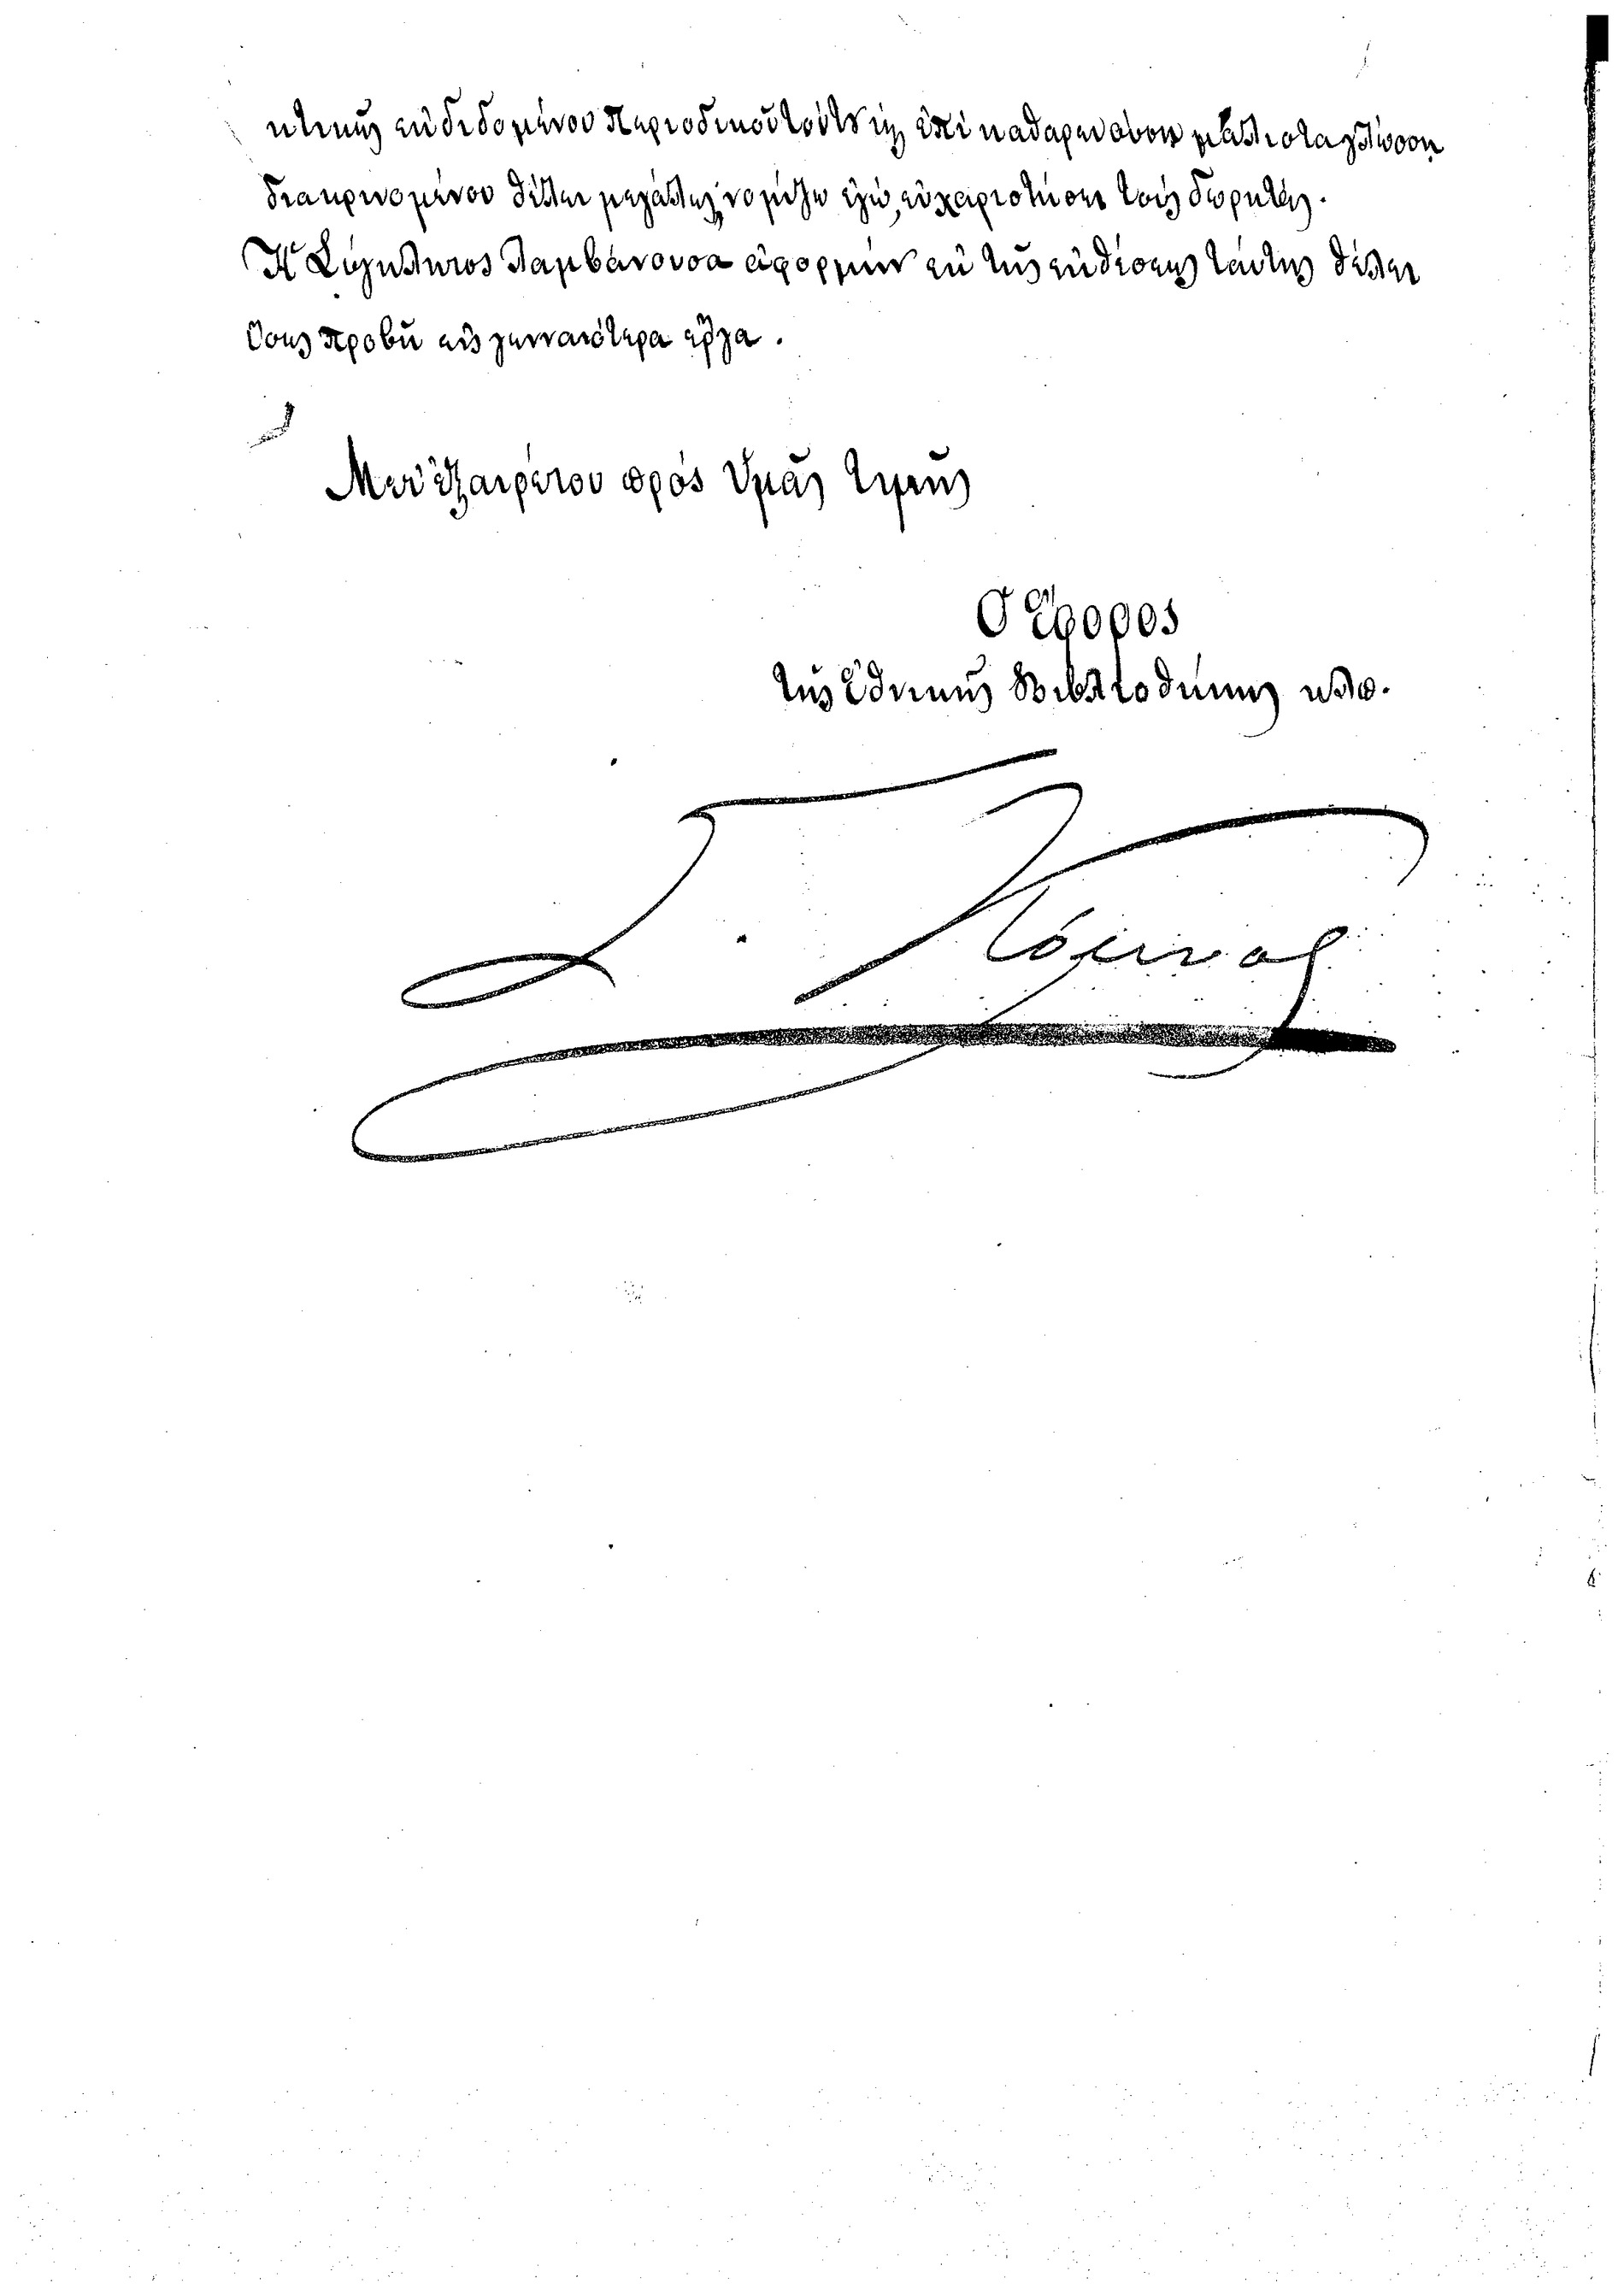 κτικῆς ἐκδιδομένου περιοδικοῦ τούτου ἐπὶ καθαρευούσῃ μάλιστα γλώσσῃ
διακρινομένου θέλει μεγάλως, νομίζω ἐγώ, εὐχαριστήσει τοὺς δωρητάς.
Ἡ Σύγκλητος λαμβάνουσα ἀφορμὴν ἐκ τῆς ἐκθέσεως ταύτης θέλει
ἴσως προβῆ εἰς γενναιότερα ἔργα.
Μετ' ἐξαιρέτου πρὸς Ὑμᾶς τιμῆς
Ὁ Ἔφορος
τῆς Ἐθνικῆς Βιβλιοθήκης κλπ.
Κόμνος